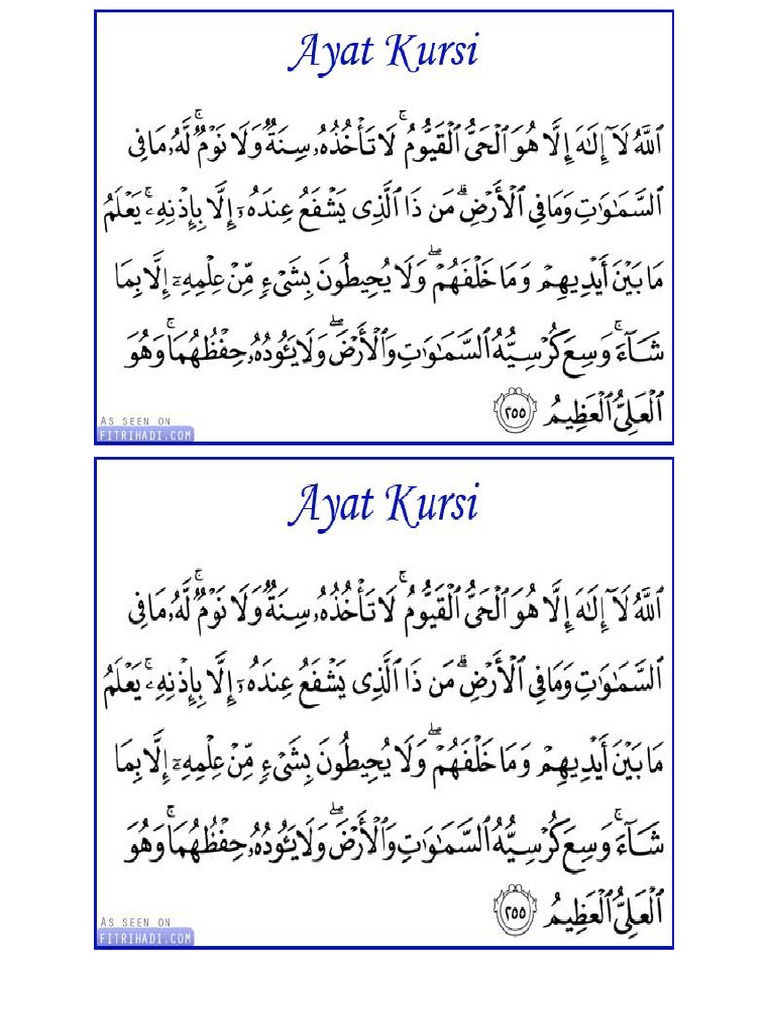 Ayat Kursi
ٱللَّهُ لَآ إِلَٰهَ إِلَّا هُوَ ٱلْحَىُّ ٱلْقَيُّومُ ۚ لَا تَأْخُذُهُۥ سِنَةٌ وَلَا نَوْمٌ ۚ لَّهُۥ مَا فِى
ٱلسَّمَٰوَٰتِ وَمَا فِى ٱلْأَرْضِ ۗ مَن ذَا ٱلَّذِى يَشْفَعُ عِندَهُۥٓ إِلَّا بِإِذْنِهِۦ ۚ يَعْلَمُ
مَا بَيْنَ أَيْدِيهِمْ وَمَا خَلْفَهُمْ ۖ وَلَا يُحِيطُونَ بِشَىْءٍ مِّنْ عِلْمِهِۦٓ إِلَّا بِمَا
شَآءَ ۚ وَسِعَ كُرْسِيُّهُ ٱلسَّمَٰوَٰتِ وَٱلْأَرْضَ ۖ وَلَا يَـُٔودُهُۥ حِفْظُهُمَا ۚ وَهُوَ
ٱلْعَلِىُّ ٱلْعَظِيمُ ٢٥٥
AS SEEN ON
FITRIHADI.COM
Ayat Kursi
ٱللَّهُ لَآ إِلَٰهَ إِلَّا هُوَ ٱلْحَىُّ ٱلْقَيُّومُ ۚ لَا تَأْخُذُهُۥ سِنَةٌ وَلَا نَوْمٌ ۚ لَّهُۥ مَا فِى
ٱلسَّمَٰوَٰتِ وَمَا فِى ٱلْأَرْضِ ۗ مَن ذَا ٱلَّذِى يَشْفَعُ عِندَهُۥٓ إِلَّا بِإِذْنِهِۦ ۚ يَعْلَمُ
مَا بَيْنَ أَيْدِيهِمْ وَمَا خَلْفَهُمْ ۖ وَلَا يُحِيطُونَ بِشَىْءٍ مِّنْ عِلْمِهِۦٓ إِلَّا بِمَا
شَآءَ ۚ وَسِعَ كُرْسِيُّهُ ٱلسَّمَٰوَٰتِ وَٱلْأَرْضَ ۖ وَلَا يَـُٔودُهُۥ حِفْظُهُمَا ۚ وَهُوَ
ٱلْعَلِىُّ ٱلْعَظِيمُ ٢٥٥
AS SEEN ON
FITRIHADI.COM